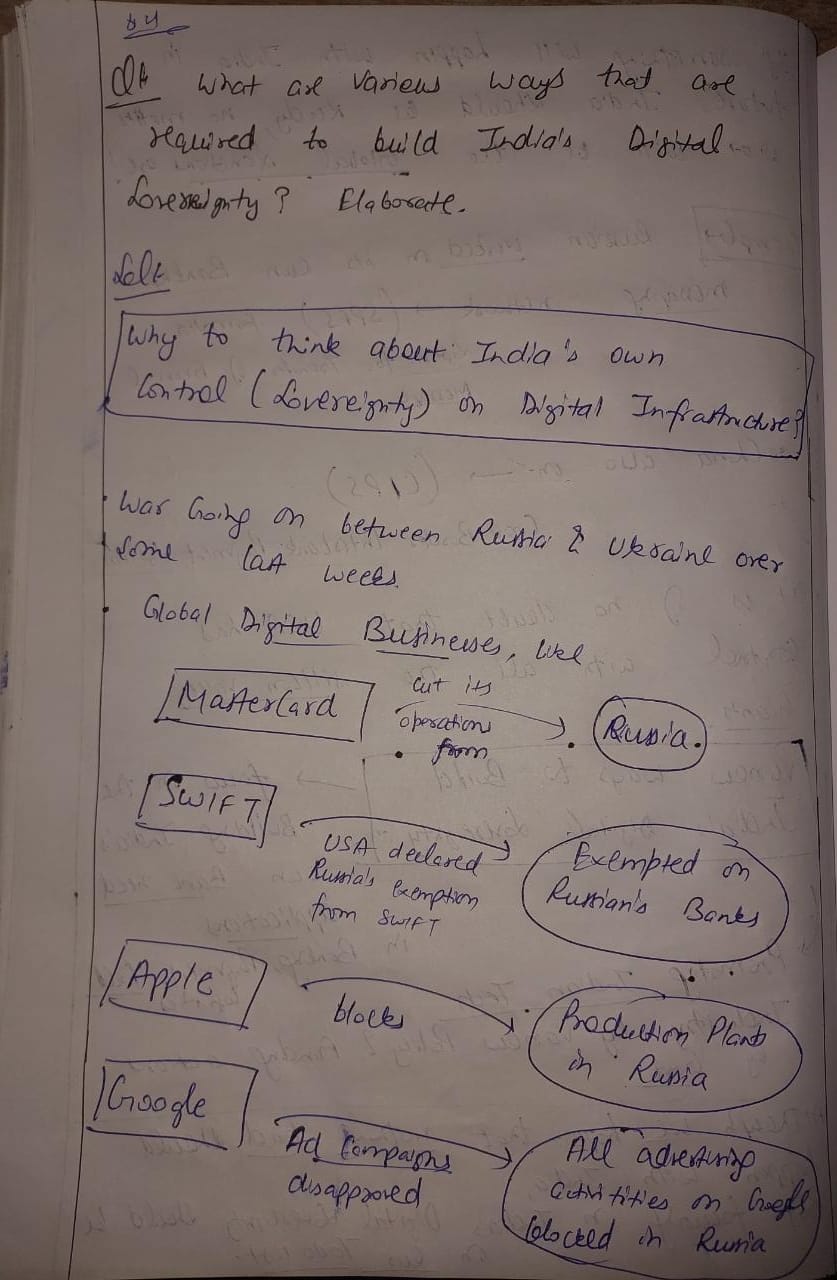 Q4 What are Various Ways that are
required to build India's Digital
Sovereignty? Elaborate.
Sol:
Why to think about India's own
Control (Sovereignty) on Digital Infrastructure?
• War Going on between Russia & Ukraine over
some last weeks.
• Global Digital Businesses, like
MasterCard
cut its
operations
from
Russia.
SWIFT
USA declared
Russia's exemption
from SWIFT
Exempted on
Russian's Banks
Apple
blocks
Production Plants
in Russia
Google
Ad Campaigns
disapproved
All advertising
activities on Google
blocked in Russia